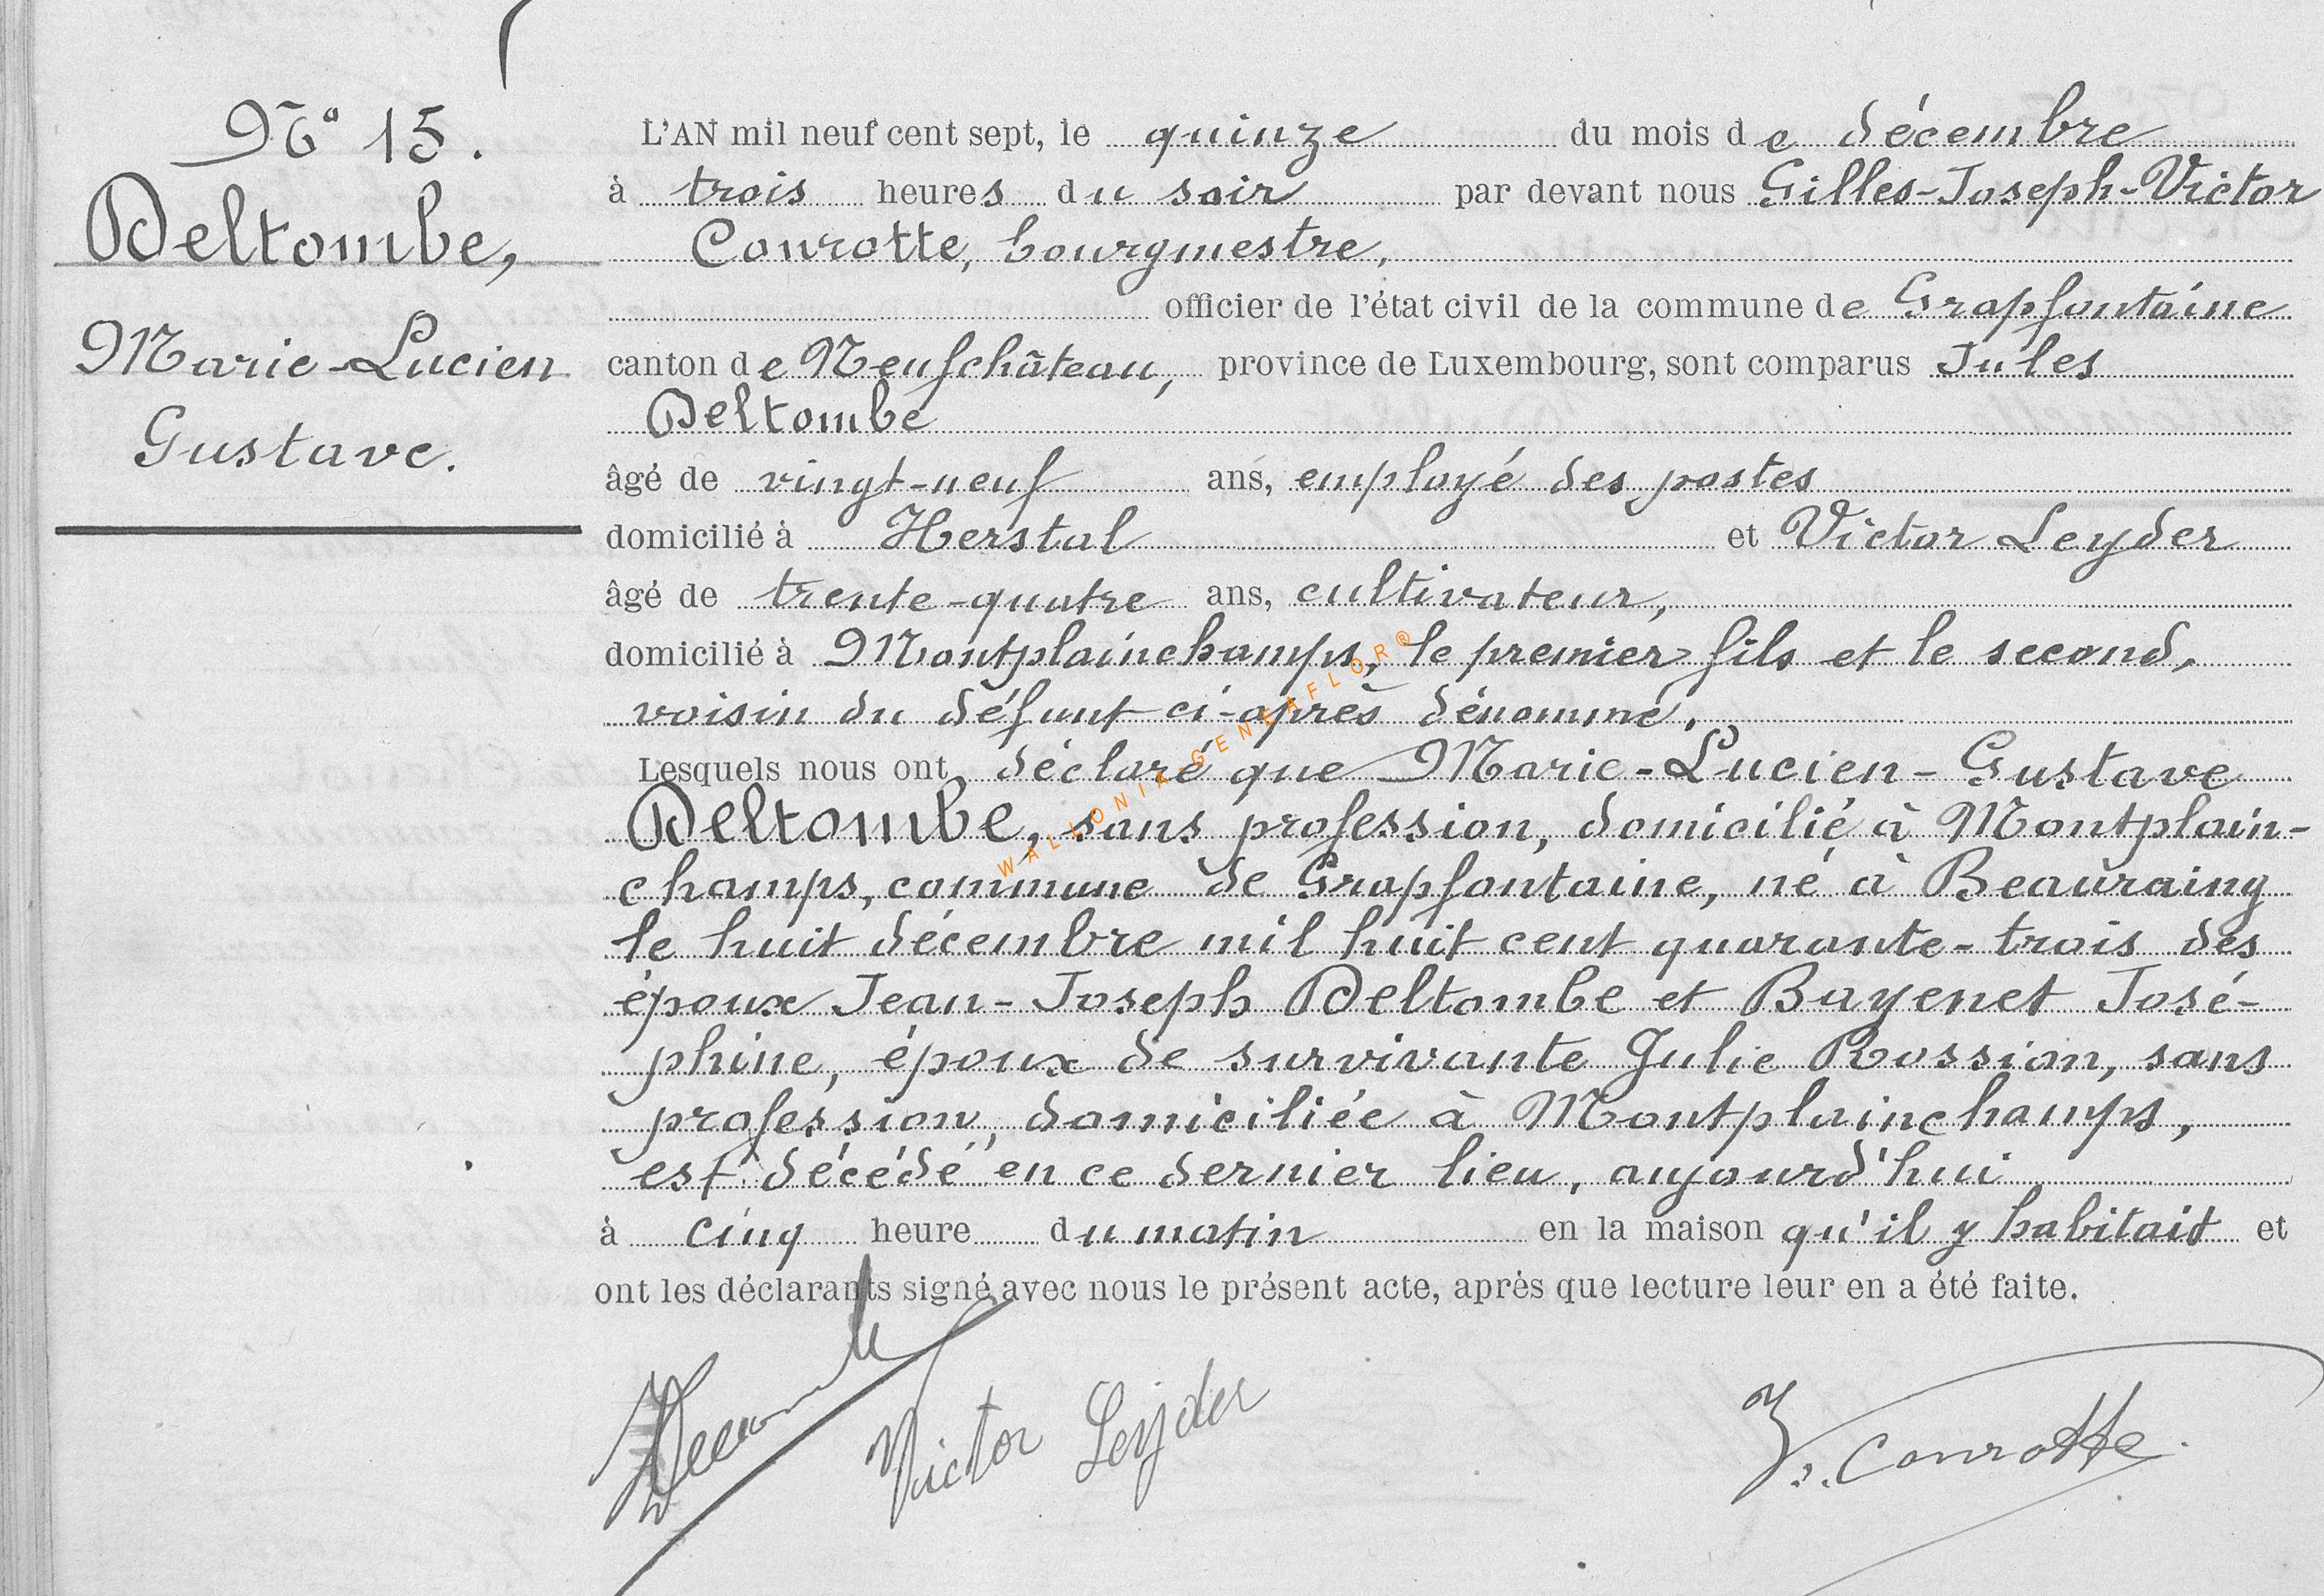 Nº 15.
Deltombe,
Marie-Lucien
Gustave.
L'AN mil neuf cent sept, le quinze du mois de décembre
à trois heures du soir par devant nous Gilles-Joseph-Victor
Conrotte, bourgmestre,
officier de l'état civil de la commune de Grapfontaine
canton de Neufchâteau, province de Luxembourg, sont comparus Jules
Deltombe
âgé de vingt-neuf ans, employé des postes
domicilié à Herstal et Victor Leyder
âgé de trente-quatre ans, cultivateur,
domicilié à Montplainchamps, le premier fils et le second,
voisin du défunt ci-après dénommé.
Lesquels nous ont déclaré que Marie-Lucien-Gustave
Deltombe, sans profession, domicilié à Montplain-
champs, commune de Grapfontaine, né à Beauraing
le huit décembre mil huit cent quarante-trois des
époux Jean-Joseph Deltombe et Bayenet José-
phine, époux de survivante Julie Rossion, sans
profession, domiciliée à Montplainchamps,
est décédé en ce dernier lieu, aujourd'hui
à cinq heure du matin en la maison qu'il y habitait et
ont les déclarants signé avec nous le présent acte, après que lecture leur en a été faite.
Victor Leyder
V. Conrotte
WALLONIA-GENEAFLOR®